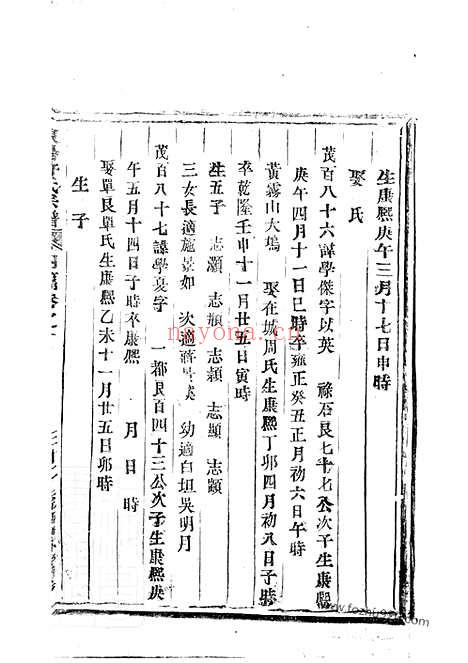 生康熙庚午三月十七日申時
娶氏
茂百八十六諱學傑字以英　祿石良七十七公次子生康熙
庚午四月十一日巳時卒雍正癸丑正月初六日午時
黃霧山大塢　娶在城周氏生康熙丁卯四月初八日子時
卒乾隆壬申十一月廿五日寅時
生五子　志灝　志穎　志顯　志顥
三女長適施景如　次適蔣　幼適白坦吳明月
茂百八十七諱學夏字　一都良百四十三公次子生康熙庚
午五月十四日子時卒康熙　月　日　時
娶單良單氏生康熙乙未十一月廿五日卯時
生子
氏宗譜
noyona.cc
www.fozhu920.com